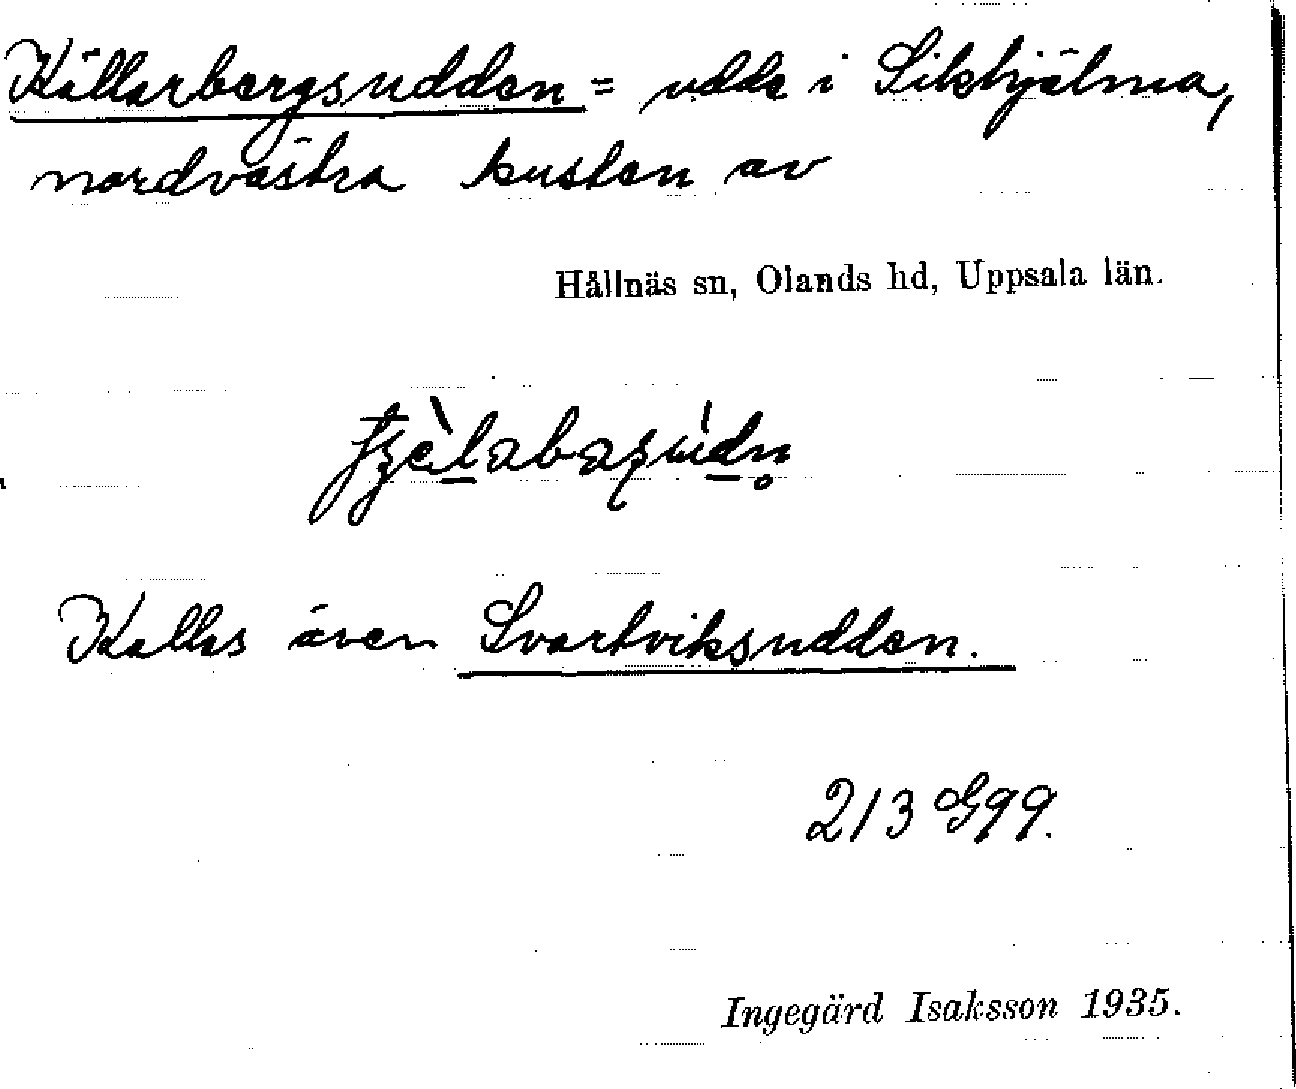 Källarbergsudden = udde i Sikhjälma,
nordvästra kusten av
Hållnäs sn, Olands hd, Uppsala län.
Kallas även Svartviksudden.
213 G99.
Ingegärd Isaksson 1935.